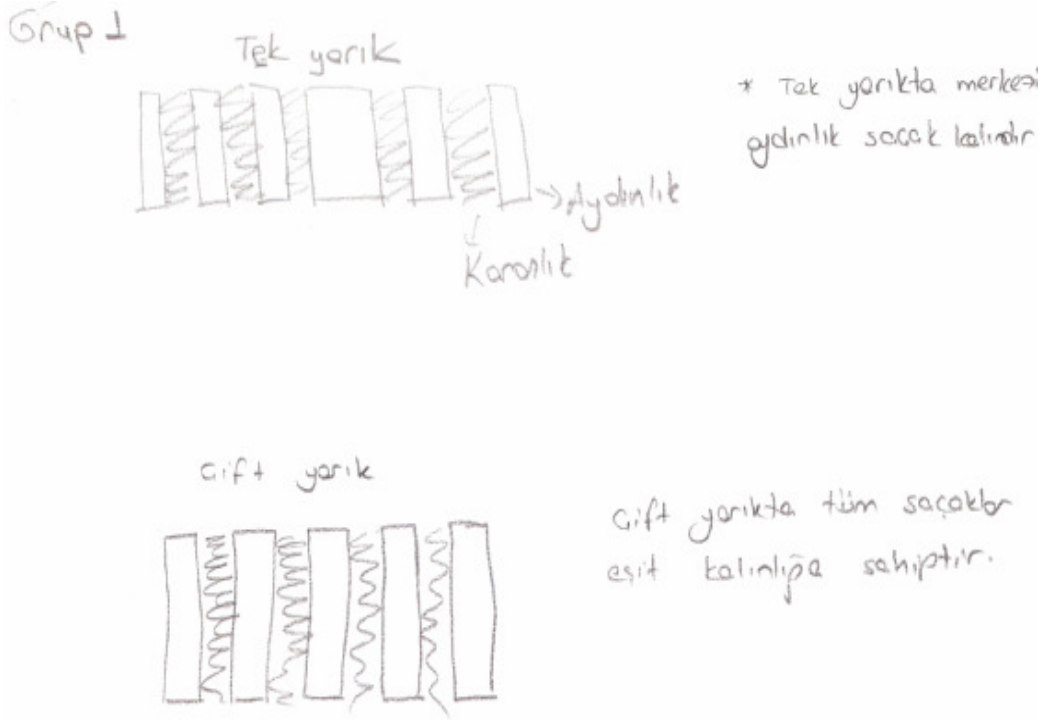 Grup 1
Tek yarık
* Tek yarıkta merkezi
aydınlık saçak kalındır
Aydınlık
Karanlık
Çift yarık
Çift yarıkta tüm saçaklar
eşit kalınlığa sahiptir.